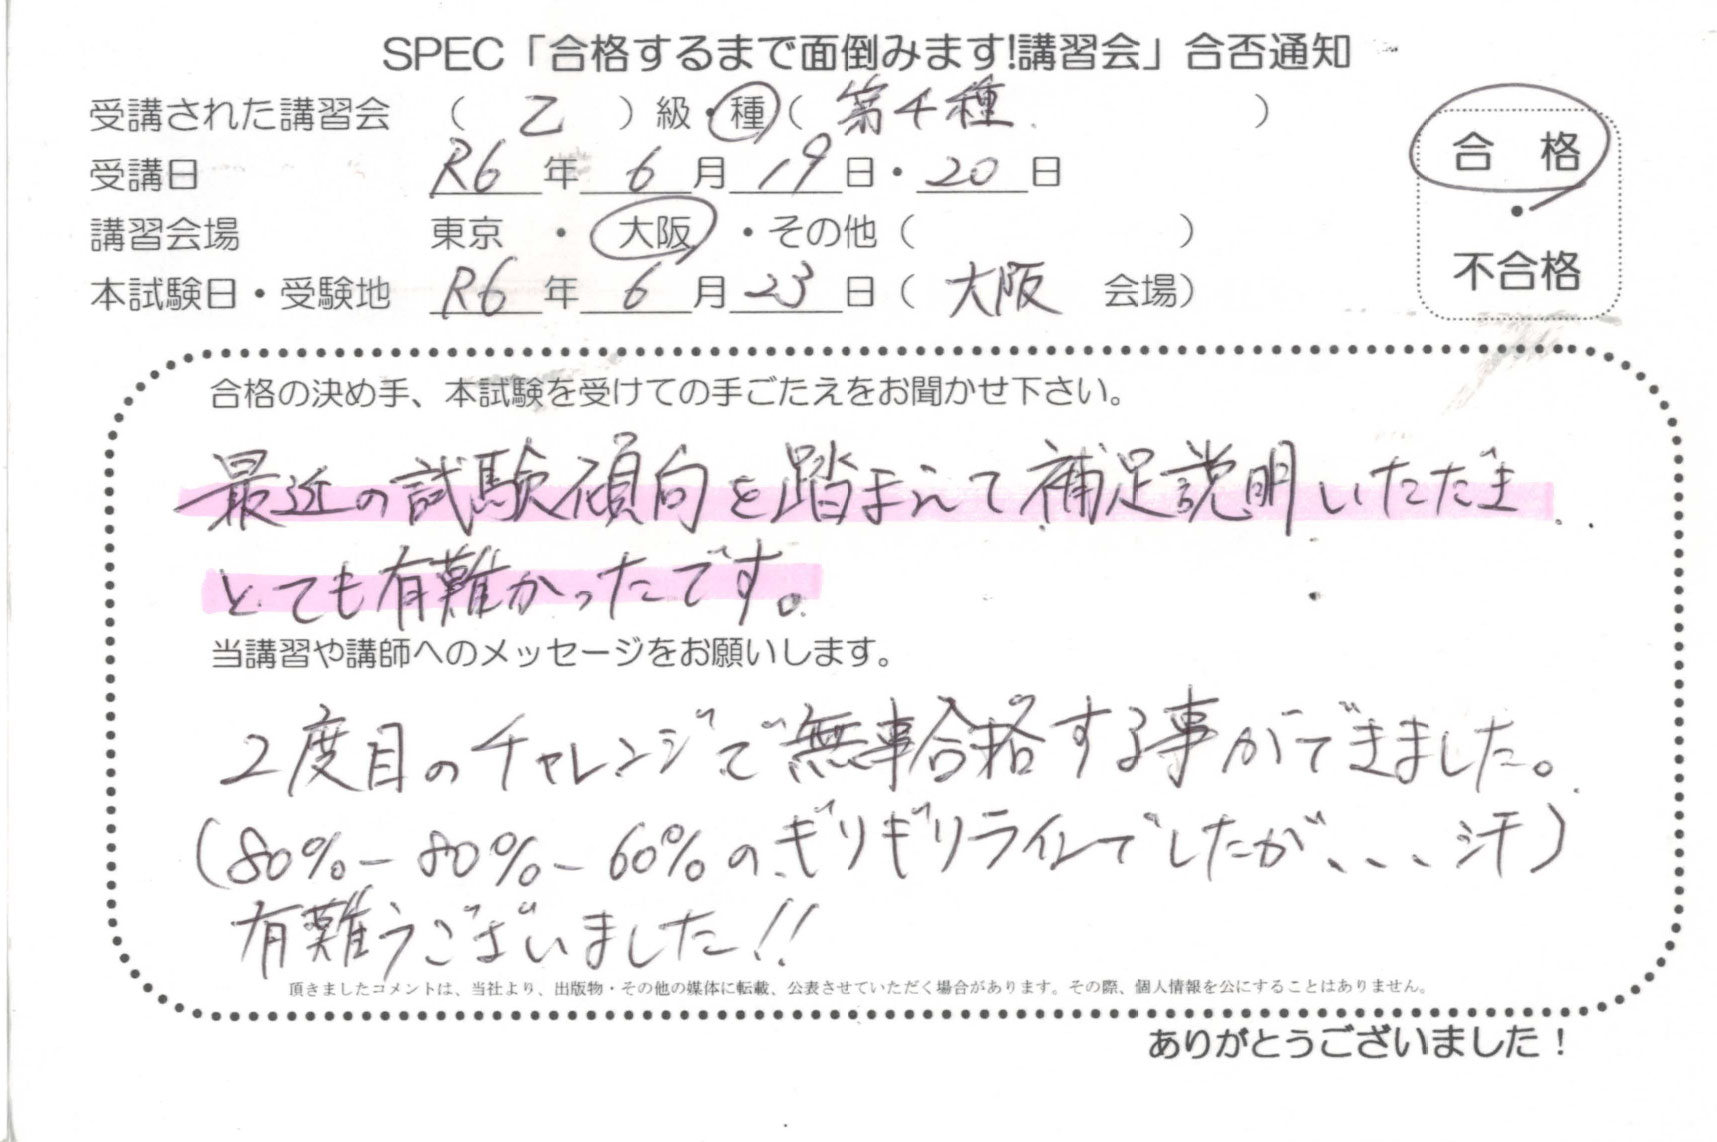 SPEC「合格するまで面倒みます!講習会」合否通知
受講された講習会 （ 乙 ）級・種（ 第4種 ）
受講日 R6年 6月 19日・20日
講習会場 東京 ・ 大阪 ・その他（ ）
本試験日・受験地 R6年 6月 23日（ 大阪 会場）
合 格
・
不合格
合格の決め手、本試験を受けての手ごたえをお聞かせ下さい。
最近の試験傾向を踏まえて補足説明いただき
とても有難かったです。
当講習や講師へのメッセージをお願いします。
2度目のチャレンジで無事合格する事ができました。
(80%-80%-60%のギリギリラインでしたが、、、汗)
有難うございました!!
頂きましたコメントは、当社より、出版物・その他の媒体に転載、公表させていただく場合があります。その際、個人情報を公にすることはありません。
ありがとうございました！